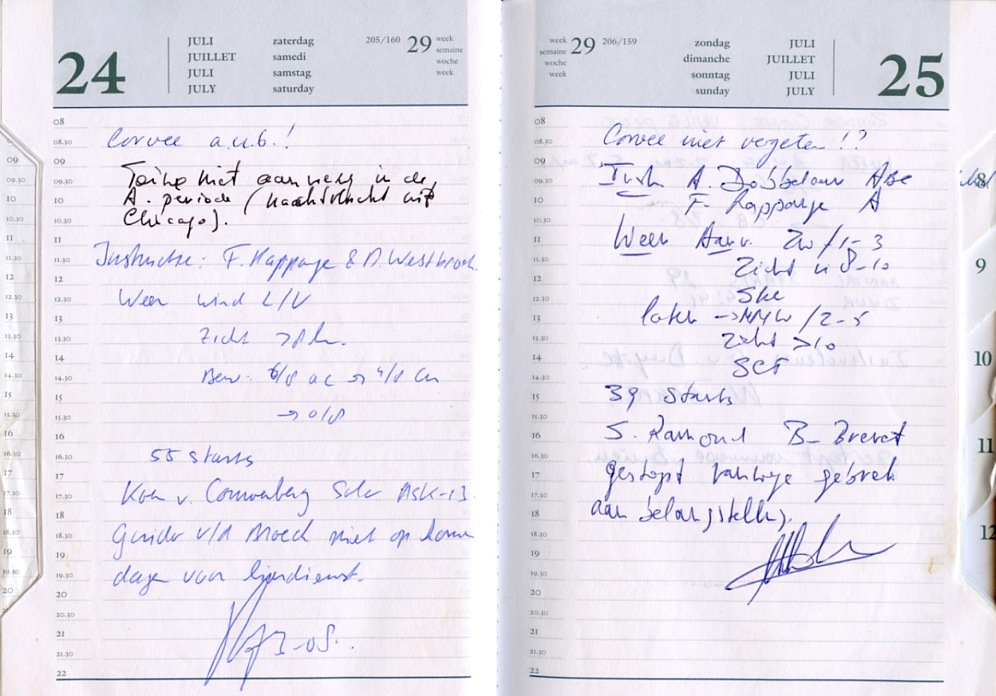 24
JULI zaterdag 205/160 29 week
JUILLET samedi semaine
JULI samstag woche
JULY saturday week
08
08.30 Corvee a.u.b.!
09
09.30 niet aanwezig in de
10 A. periode (nachtvlucht uit
10.30 Chicago).
11
11.30 Instructie: F. Rappange & D. Westbroek.
12
12.30 Weer wind L/V
13
13.30 Zicht >8 km.
14
14.30 Bew: 6/8 ac → 4/8 Cu
15
15.30 → 0/8
16
16.30 55 starts
17
17.30 Koen v. Couwenberg Solo ASK-13.
18
18.30 Guido v/d Broeck niet op komen
19
19.30 dagen voor lierdienst.
20
20.30
21
21.30
22
week 29 206/159 zondag JULI
semaine dimanche JUILLET
woche sonntag JULI
week sunday JULY
25
08
08.30 Corvee niet vergeten!?
09
09.30 Instr A. Dobbelaar ABC
10 F. Rappange A
10.30
11
11.30 Weer Aanv. ZW/1-3
12 Zicht 8-10
12.30
13 Skc
13.30 later → NNW/2-5
14 Zicht >10
14.30 SCT
15
15.30 39 Starts
16
16.30 S. Ramond B-Brevet
17
17.30 gestopt vanwege gebrek
18
18.30 aan belangstelling.
19
19.30
20
20.30
21
21.30
22
8
9
10
11
12